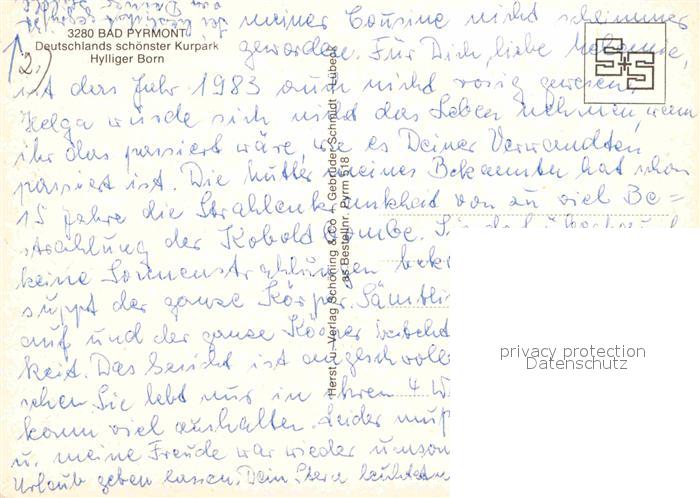 3280 BAD PYRMONT
Deutschlands schönster Kurpark
Hylliger Born
2.)
meiner Cousine nicht schlimmer
geworden. Für Dich, liebe
ist das Jahr 1983 auch nicht rosig gewesen.
Helga würde sich nicht das Leben nehmen, wenn
ihr das passiert wäre, wie es Deiner Verwandten
passiert ist. Die Mutter meines Bekannten hat schon
15 Jahre die Strahlenkrankheit von zu viel Be=
strahlung der Koboldbombe.
keine Sonnenstrahlungen
der ganze Körper. Sämtli
auf und der ganze Körper
keit. Das Gesicht ist angeschwolle
schen. Sie lebt nur in ihren 4 W
kann viel aushalten. Leider muß
u. meine Freude war wieder umson
Urlaub geben lassen. Dein Stern leuchtet
Herst. u. Verlag Schöning & Co + Gebrüder Schmidt · Lübeck
Bestellnr. Pyrm 518
privacy protection
Datenschutz